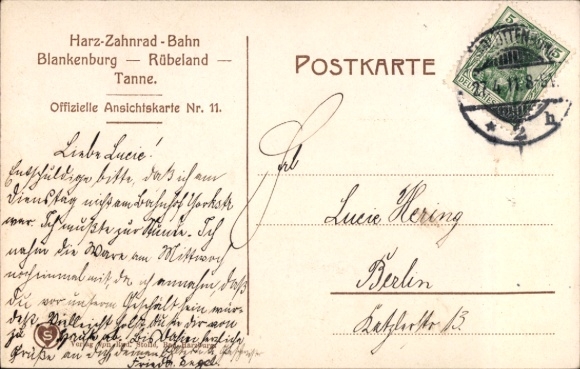 Harz-Zahnrad-Bahn
Blankenburg — Rübeland —
Tanne.
Offizielle Ansichtskarte Nr. 11.
POSTKARTE
5 5
CHARLOTTENBURG
11 8-9V.
* 2 h
Liebe Lucie!
Entschuldige bitte, daß ich am
Dienstag nicht am Bahnhof Yorkstr.
war. Ich mußte zur Stunde. Ich
nahm die Ware am Mittwoch
nocheinmal mit, da ich annahm, daß
du vor unserm Geschäft sein wür-
dest. Vielleicht holst du sie dir von
zu Hause ab. Bis dahin herzliche
Grüße an dich deinen
Frl.
Lucie Hering
Berlin
Katzlerstr 13.
S
Verlag Rud. Stolle, Bad Harzburg